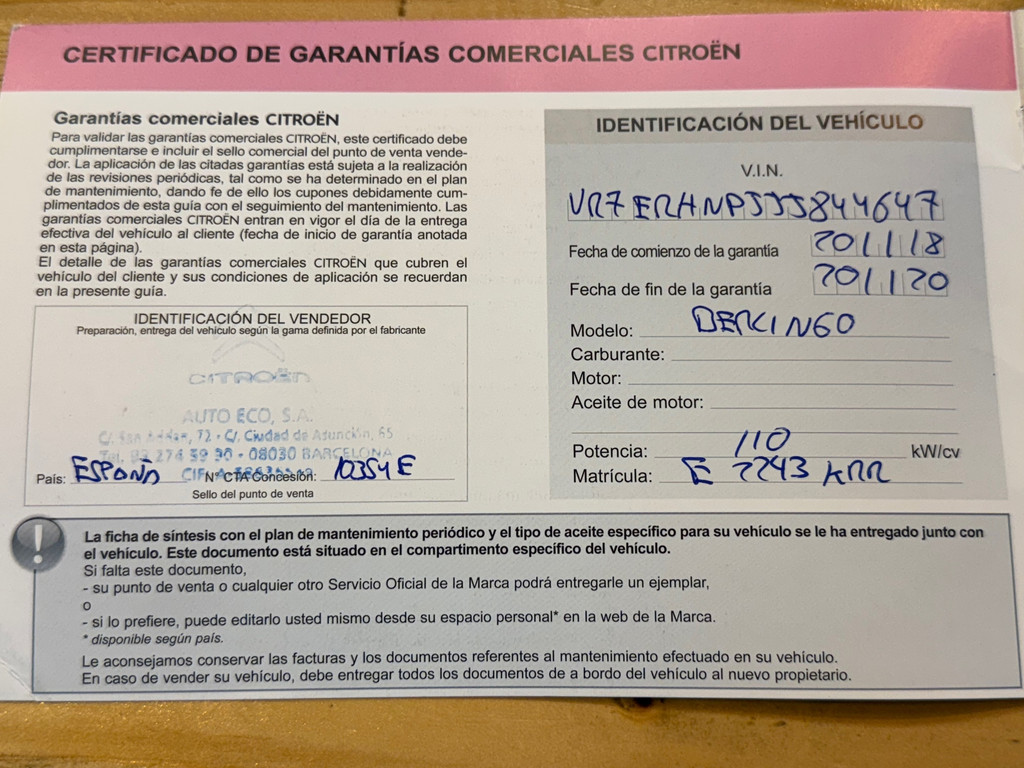 CERTIFICADO DE GARANTÍAS COMERCIALES CITROËN
Garantías comerciales CITROËN
Para validar las garantías comerciales CITROËN, este certificado debe
cumplimentarse e incluir el sello comercial del punto de venta vende-
dor. La aplicación de las citadas garantías está sujeta a la realización
de las revisiones periódicas, tal como se ha determinado en el plan
de mantenimiento, dando fe de ello los cupones debidamente cum-
plimentados de esta guía con el seguimiento del mantenimiento. Las
garantías comerciales CITROËN entran en vigor el día de la entrega
efectiva del vehículo al cliente (fecha de inicio de garantía anotada
en esta página).
El detalle de las garantías comerciales CITROËN que cubren el
vehículo del cliente y sus condiciones de aplicación se recuerdan
en la presente guía.
IDENTIFICACIÓN DEL VENDEDOR
Preparación, entrega del vehículo según la gama definida por el fabricante
CITROËN
AUTO ECO, S.A.
C/. San 72 - C/. Ciudad de Asunción, 65
Tel. 93 274 59 90 - 08030 BARCELONA
CIF.
País: ESPAÑA Nº CTA Concesión: 10354E
Sello del punto de venta
IDENTIFICACIÓN DEL VEHÍCULO
V.I.N.
VR7ERHNPJJJ844647
Fecha de comienzo de la garantía 201118
Fecha de fin de la garantía 201120
Modelo: BERLINGO
Carburante:
Motor:
Aceite de motor:
Potencia: 110 kW/cv
Matrícula: E 2243 KRR
La ficha de síntesis con el plan de mantenimiento periódico y el tipo de aceite específico para su vehículo se le ha entregado junto con
el vehículo. Este documento está situado en el compartimento específico del vehículo.
Si falta este documento,
- su punto de venta o cualquier otro Servicio Oficial de la Marca podrá entregarle un ejemplar,
o
- si lo prefiere, puede editarlo usted mismo desde su espacio personal* en la web de la Marca.
* disponible según país.
Le aconsejamos conservar las facturas y los documentos referentes al mantenimiento efectuado en su vehículo.
En caso de vender su vehículo, debe entregar todos los documentos de a bordo del vehículo al nuevo propietario.